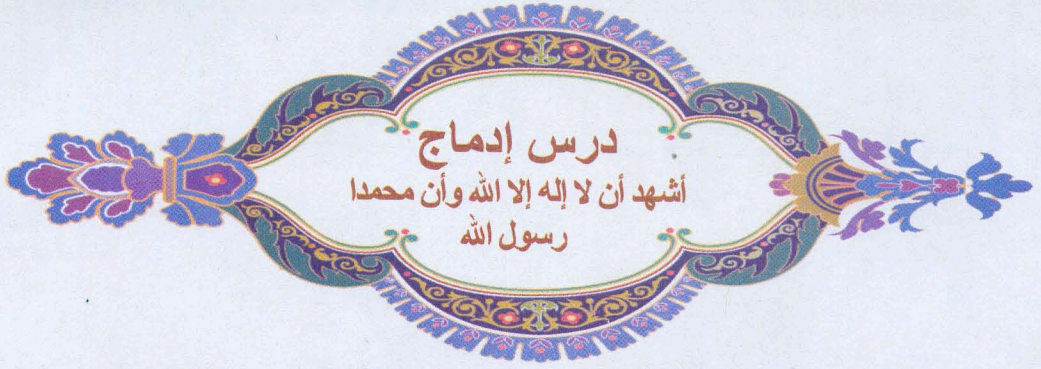 درس إدماج
أشهد أن لا إله إلا الله وأن محمدا
رسول الله